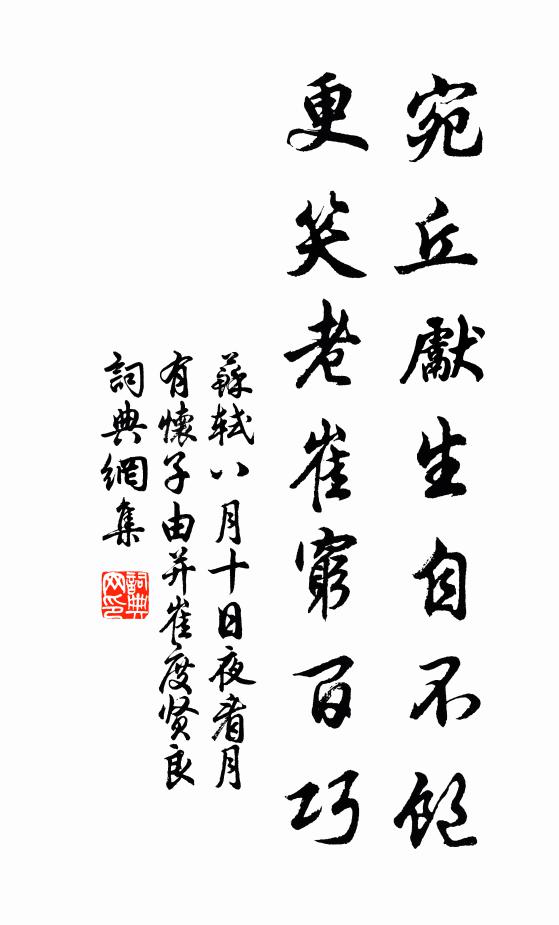 宛丘獻生自不飽
更笑老崔窮百巧
蘇軾八月十日夜看月
有懷子由并崔度贤良
詞典網集
詞典网印